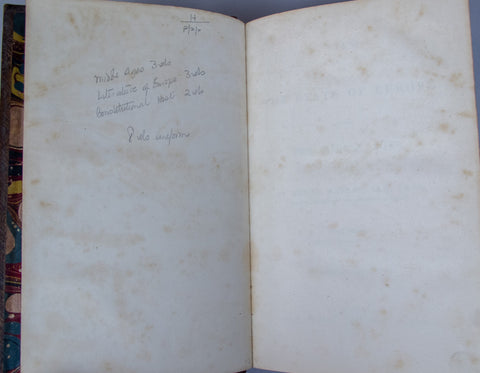 H
p/o/o
Middle Ages 3 vols
Literature of Europe 3 vols
Constitutional Hist 2 vols
8 vols uniform